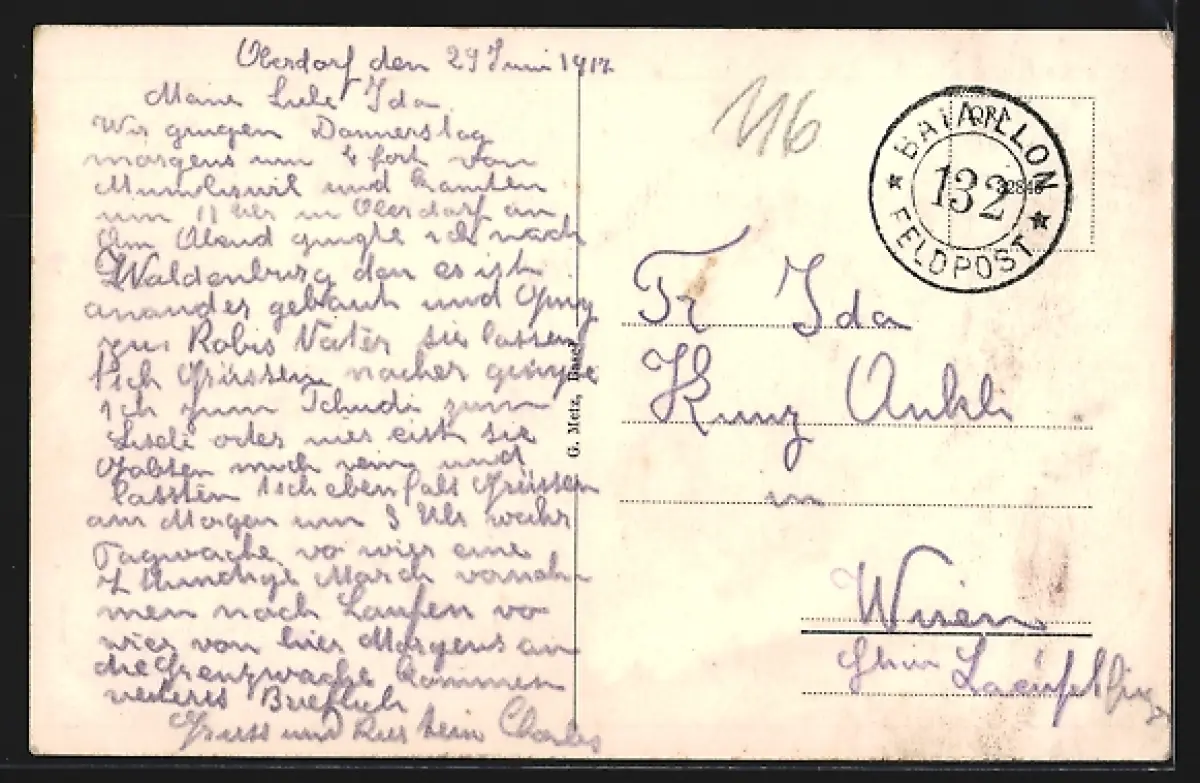 Oberdorf den 29 Juni 1917
Meine Liebe Ida
Wir gingen Donnerstag
morgens um 4 fort von
Mumliswil und kamten
um 11 Uer in Oberdorf an,
Am Abend gingte ich nach
Waldenburg den es ist
anander gebaut und Ging
zu Robis Vater sie lassen
sich Grüssen nacher gingte
ich zum Tschudi zum
Liseli oder wer eist sie
Gabten mich wein und
lassten sich ebenfals Grüssen
am Morgen um 3 Uhr wahr
Tagwache vo wier eine
7 stundige March vornah-
men nach Laufen vo
wier von hier Morgens an
die Grenzwache kommen
weiteres Brieflich
Gruss und Kus dein Charles
G. Metz, Basel
116
BATAILLON
132
FELDPOST
Fr Ida
Kunz Ankli
in